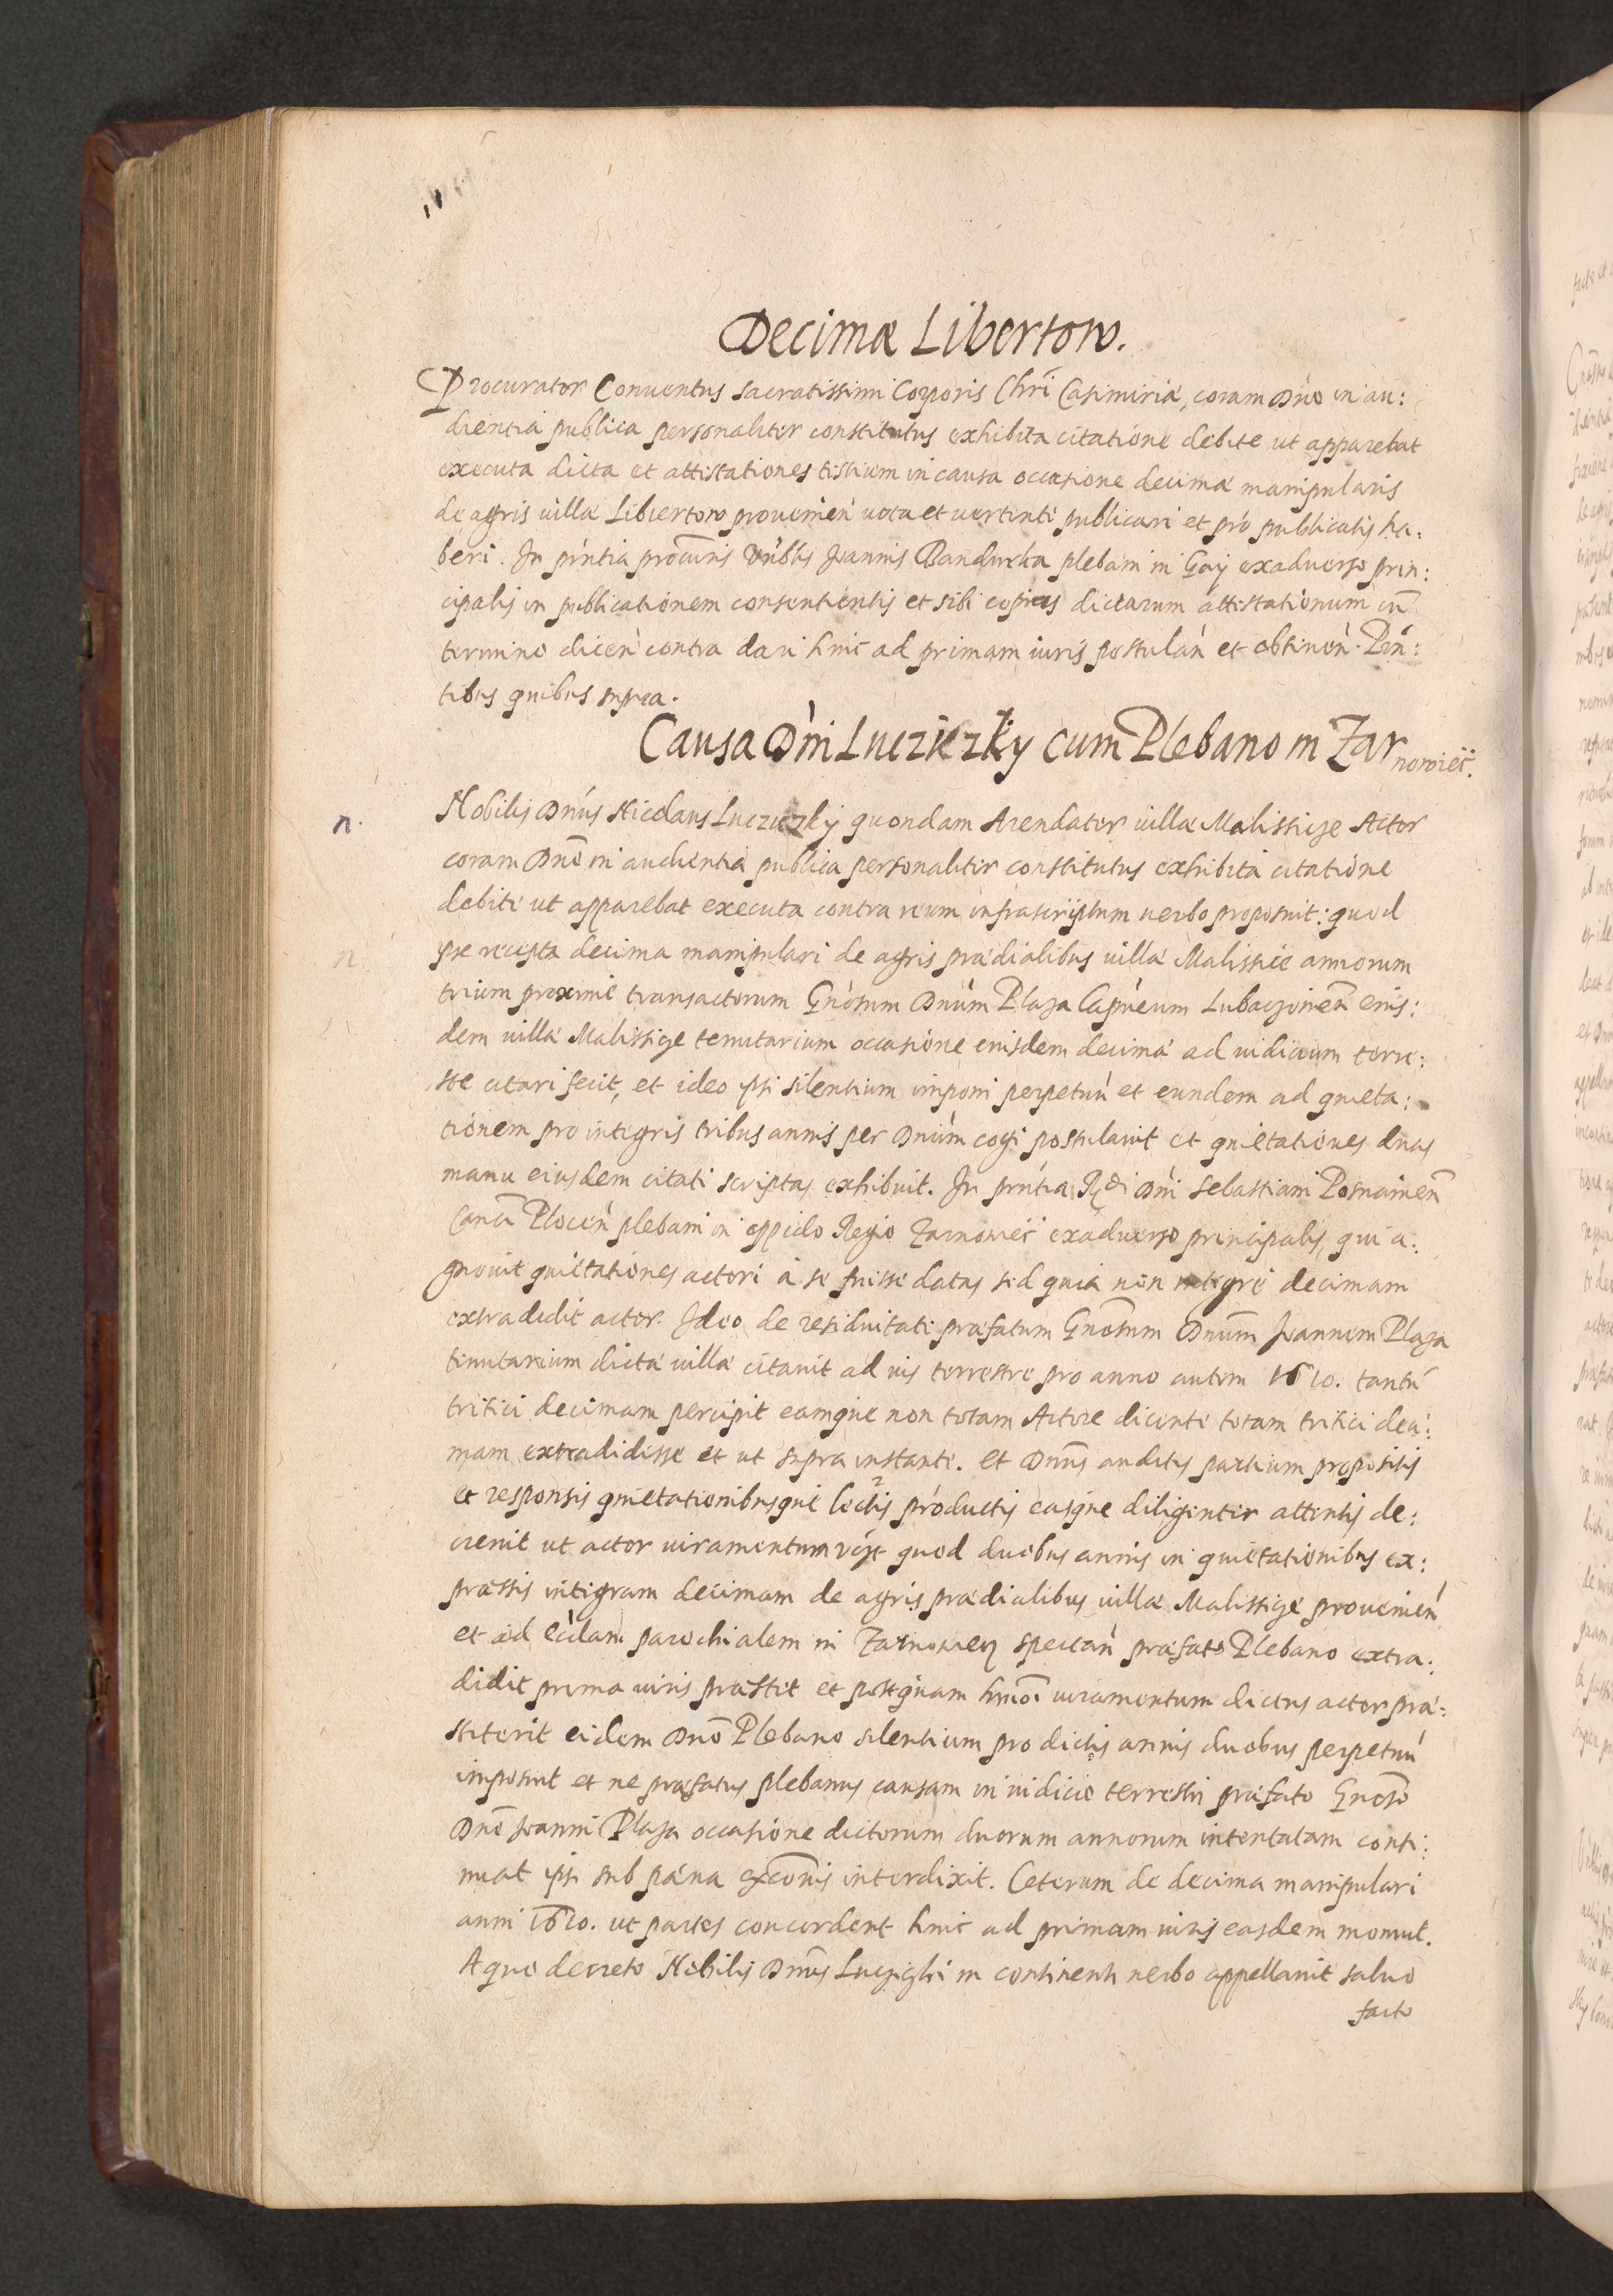 Decimæ Libertow.
Procurator Conventus Sacratissimi Corporis Chri Casimiriæ, coram Dno in au:
dientia publica personaliter constitutus exhibita citatione debite ut apparebat
executa dicta et attestationes testium in causa occasione decimæ manipularis
de agris villæ Libiertow provenien mota et vertente publicari et pro publicatis ha:
beri. In pntia procuris Vnblis Joannis Bandurka plebani in Gay exadverso prin:
cipalis in publicationem consentientis et sibi copias dictarum attestationum cu
termino dicen contra dari hinc ad primam iuris postulan et obtinen. Pen:
tibus quibus supra.
Causa Dni Luczyczky cum Plebano in Zar
nowiec.
n. Nobilis Dnus Nicolaus Luczyczky quondam Arendator villæ Malissicze Actor
coram Dno in audientia publica personaliter constitutus exhibita citatione
debite ut apparebat executa contra reum infrascriptum verbo proposuit: quod
n ipse recepta decima manipulari de agris prædialibus villæ Malissice annorum
trium proxime transactorum Gnosum Dnum Plaza Capneum Lubaczovien eius:
dem villæ Malissicze tenutarium occasione eiusdem decimæ ad iudicium terre:
ste citari fecit, et ideo ipsi silentium imponi perpetuu et eundem ad quieta:
tionem pro integris tribus annis per Dnum cogi postulavit et quietationes duas
manu eiusdem citati scriptas exhibuit. In pntia Rdi Dni Sebastiani Posnanien
Canci Plocen plebani in oppido Regio Zarnowiec exadverso principalis, qui a:
gnovit quietationes actori a se fuisse datas sed quia non integre decimam
extradidit actor. Ideo de residuitate præfatum Gnosum Dnum Joannem Plaza
tenutarium dictæ villæ citavit ad ius terrestre pro anno autem 1610. tantu
tritici decimam percipit eamque non totam Actore dicente totam tritici deci:
mam extradidisse et ut supra instante. Et Dnus auditis partium propositis
et responsis quietationibusque lectis productis easque diligenter attentis de:
crevit ut actor iuramentum quod duobus annis in quietationibus ex:
pressis integram decimam de agris prædialibus villæ Malissicze provenien
et ad ecclam parochialem in Zarnowiecz spectan præfato Plebano extra:
didit prima iuris præstet et postquam hmoi iuramentum dictus actor præ:
stiterit eidem Dno Plebano silentium pro dictis annis duobus perpetuu
imposuit et ne præfatus plebanus causam in iudicio terrestri præfato Gnoso
Dno Joanni Plaza occasione dictorum duorum annorum intentatam conti:
nuat ipsi sub pæna excoönis interdixit. Ceterum de decima manipulari
anni 1610. ut partes concordent hinc ad primam iuris easdem monuit.
A quo decreto Nobilis Dnus Luczyczki in continenti verbo appellavit salvo
facto